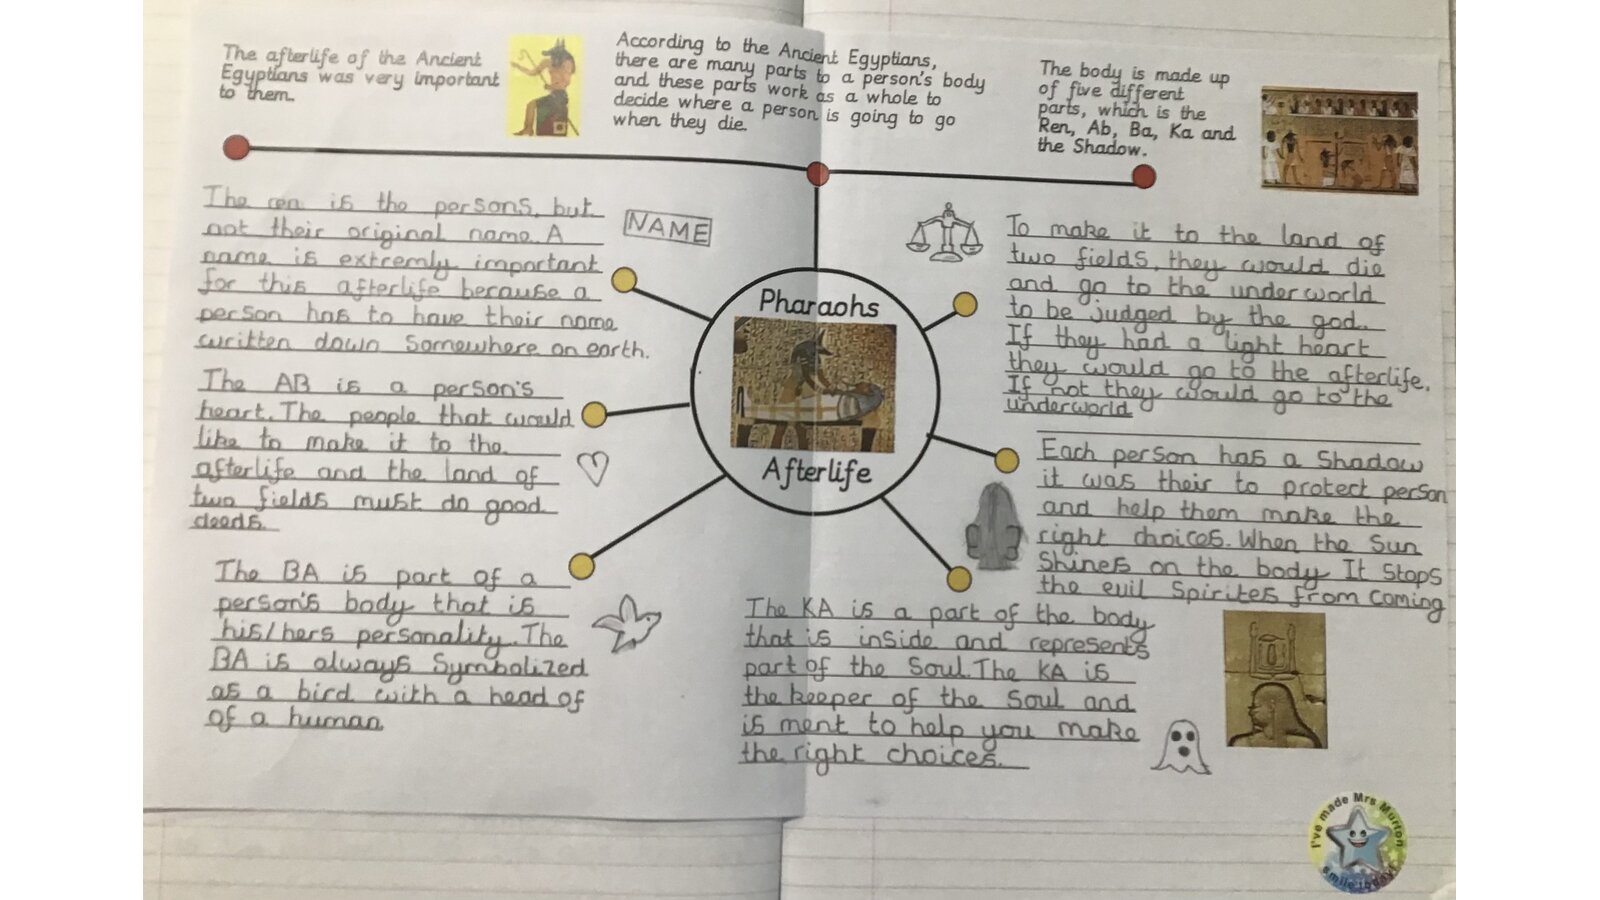 The afterlife of the Ancient
Egyptians was very important
to them.
According to the Ancient Egyptians,
there are many parts to a person's body
and these parts work as a whole to
decide where a person is going to go
when they die.
The body is made up
of five different
parts, which is the
Ren, Ab, Ba, Ka and
the Shadow.
The ren is the persons, but
not their original name. A
name is extremly important
for this afterlife because a
person has to have their name
written down somewhere on earth.
NAME
The AB is a person's
heart. The people that would
like to make it to the
afterlife and the land of
two fields must do good
deeds.
The BA is part of a
person's body that is
his/hers personality. The
BA is always Symbolized
as a bird with a head of
of a human
Pharaohs
Afterlife
To make it to the land of
two fields, they would die
and go to the underworld
to be judged by the god.
If they had a light heart
they would go to the afterlife.
If not they would go to the
underworld
Each person has a Shadow
it was their to protect person
and help them make the
right choices. When the Sun
Shines on the body It Stops
the evil Spirites from coming
The KA is a part of the body
that is inside and represents
part of the Soul. The KA is
the keeper of the Soul and
is ment to help you make
the right choices.
I've made Mrs Murton
smile today!